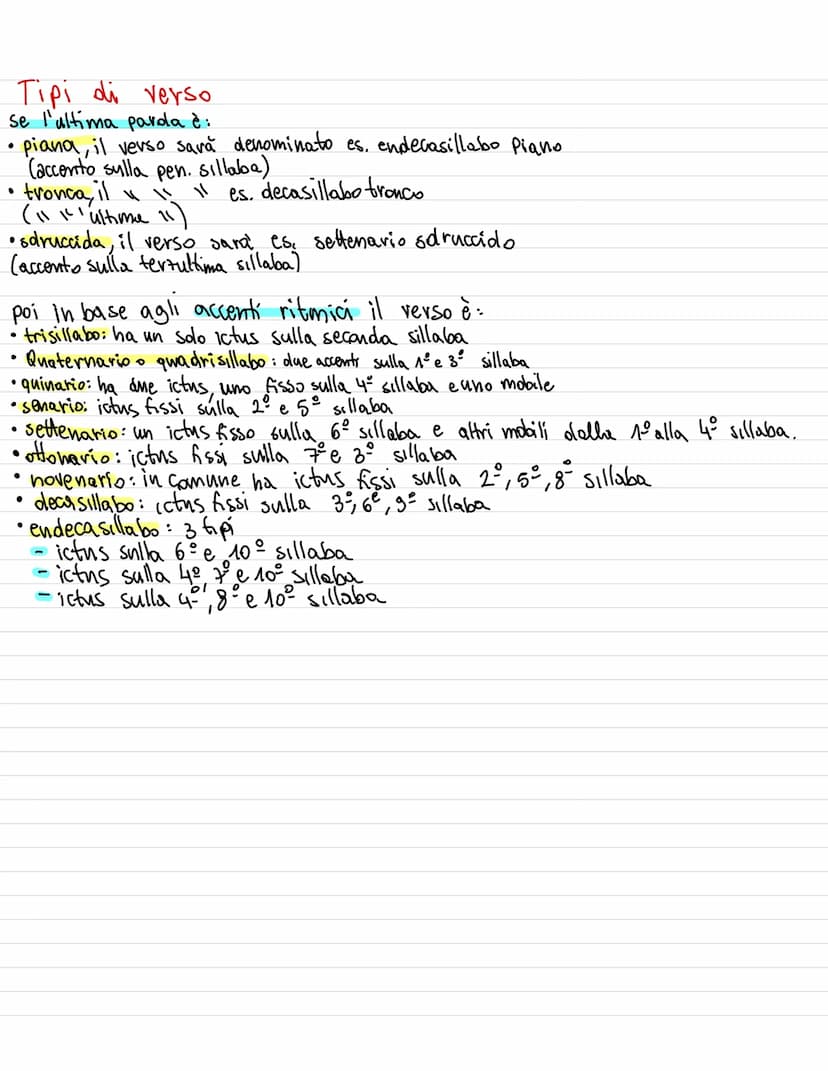 Tipi di verso
se l'ultima parola è:
• piana, il verso sarà denominato es. endecasillabo piano
(accento sulla pen. sillaba)
• tronca, il " " " es. decasillabo tronco
(" " 'ultima ")
• sdrucciola, il verso sarà es. settenario sdrucciolo
(accento sulla terzultima sillaba)
poi in base agli accenti ritmici il verso è:
• trisillabo: ha un solo ictus sulla seconda sillaba
• Quaternario o quadrisillabo: due accenti sulla 1º e 3º sillaba
• quinario: ha due ictus, uno fisso sulla 4º sillaba e uno mobile
• senario: ictus fissi sulla 2º e 5º sillaba
• settenario: un ictus fisso sulla 6º sillaba e altri mobili dalla 1º alla 4º sillaba.
• ottonario: ictus fissi sulla 7º e 3º sillaba
• novenario: in comune ha ictus fissi sulla 2º, 5º, 8º sillaba
• decasillabo: ictus fissi sulla 3º, 6º, 9º sillaba
• endecasillabo: 3 tipi
- ictus sulla 6º e 10º sillaba
- ictus sulla 4º 7º e 10º sillaba
- ictus sulla 4º, 8º e 10º sillaba